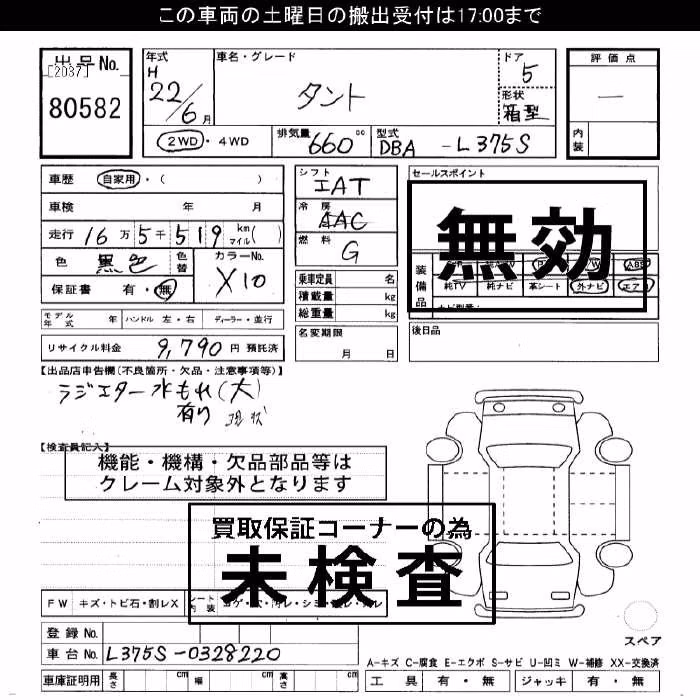 この車両の土曜日の搬出受付は17:00まで
出品No.
[2037]
80582
年式
H
22/6月
車名・グレード
タント
ドア
5
形状
箱型
評価点
―
内装
2WD・4WD
排気量 660cc
型式 DBA -L375S
車歴 自家用・( )
車検 年 月
走行 16万5千519km マイル( )
色 黒色 色替
カラーNo. X10
保証書 有・無
モデル年式 年 ハンドル 左・右 ディーラー・並行
リサイクル料金 9,790円 預託済
シフト IAT
冷房 AAC
燃料 G
乗車定員 名
積載量 kg
総重量 kg
名変期限
月 日
セールスポイント
無効
装備品
純TV 純ナビ 革シート 外ナビ エアB
後日品
【出品店申告欄(不良箇所・欠品・注意事項等)】
ラジエター水もれ(大)
有り 現状
【検査員記入】
機能・機構・欠品部品等は
クレーム対象外となります
買取保証コーナーの為
未検査
FW キズ・トビ石・割レX
シート内装
登録No.
車台No. L375S-0328220
車庫証明用 長さ cm 幅 cm 高さ cm
スペア
A-キズ C-腐食 E-エクボ S-サビ U-凹ミ W-補修 XX-交換済
工具 有・無 ジャッキ 有・無